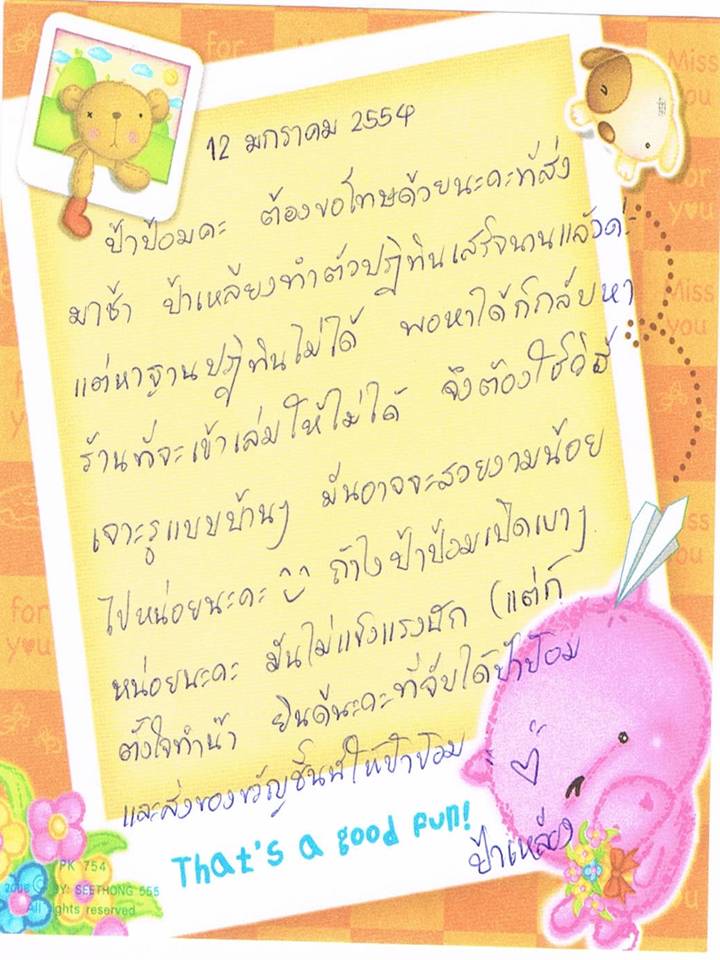 12 มกราคม 2554
ป้าป้อมคะ ต้องขอโทษด้วยนะคะที่ส่ง
มาช้า ป้าเหลี่ยงทำตัวปฏิทินเสร็จนานแล้วค่ะ
แต่หาฐานปฏิทินไม่ได้ พอหาได้ก็กลับหา
ร้านที่จะเข้าเล่มให้ไม่ได้ จึงต้องใช้วิธี
เจาะรูแบบบ้านๆ มันอาจจะสวยงามน้อย
ไปหน่อยนะคะ ถ้าไงป้าป้อมเปิดเบาๆ
หน่อยนะคะ มันไม่แข็งแรงนัก (แต่ก็
ตั้งใจทำน๊า ยินดีนะคะที่จับได้ป้าป้อม
และส่งของขวัญชิ้นนี้ให้ป้าป้อม
ป้าเหลี่ยง
That's a good fun!
PK 754
2008 © BY: SEETHONG 555
All rights reserved
for
Miss
you
for
you
Miss
you
for
you